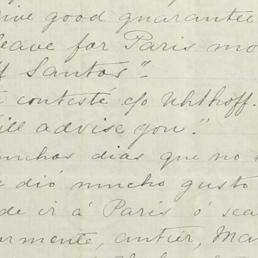 ive good guarantee
leave for Paris mo
ff Santos".
contesté c/o Uhthoff.
ill advise you."
muchos dias que no
e dió mucho gusto
de ir á Paris ó sea
armente, antier, Ma